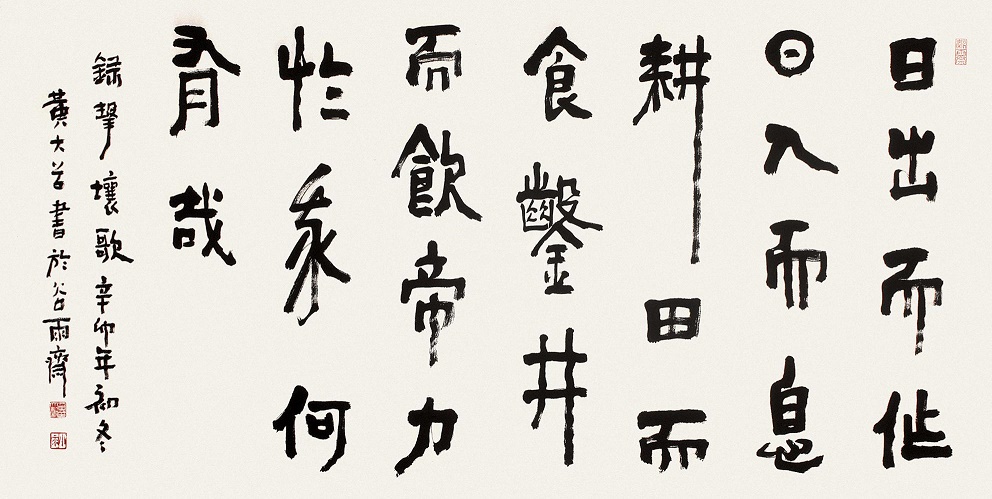 日出而作
日入而息
耕田而
食鑿井
而飲帝力
於我何
有哉
録擊壤歌辛卯年初冬
黃大書於谷雨齋